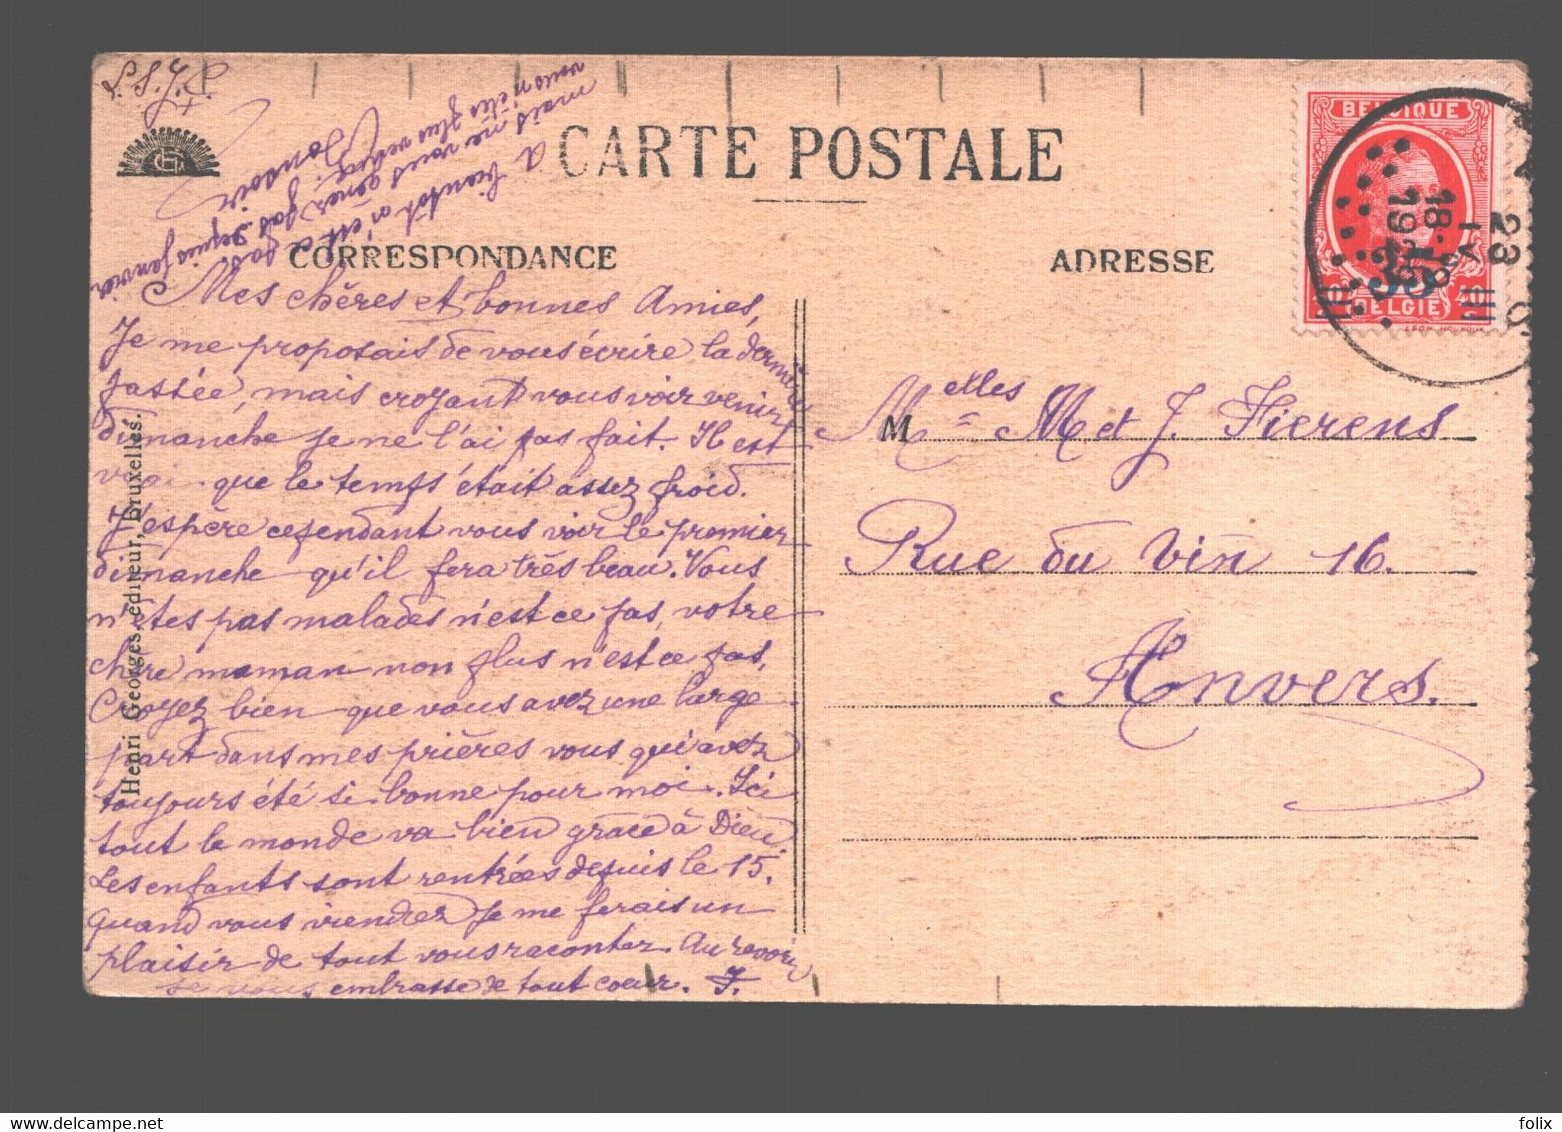 L. S. J. C.
CARTE POSTALE
CORRESPONDANCE
ADRESSE
A bientôt n'est ce pas
mais ne vous gênez pas
vous n'êtes plus venues depuis Janvier
Bonsoir
Mes chères et bonnes Amies,
Je me proposais de vous écrire la dernière
passée, mais croyant vous voir venir
dimanche je ne l'ai pas fait. Il est
vrai que le temps était assez froid.
J'espère cependant vous voir le premier
dimanche qu'il fera très beau. Vous
n'êtes pas malades n'est ce pas, votre
chère maman non plus n'est ce pas,
Croyez bien que vous avez une large
part dans mes prières vous qui avez
toujours été si bonne pour moi. Ici
tout le monde va bien grace à Dieu,
Les enfants sont rentrées depuis le 15.
quand vous viendrez je me ferais un
plaisir de tout vous raconter. Au revoir
je vous embrasse de tout coeur. J.
Henri Georges, éditeur, Bruxelles.
BELGIQUE
BELGIE
18-19
1923
23
IV
M elles M et J. Fierens
Rue du Vin 16.
Anvers.